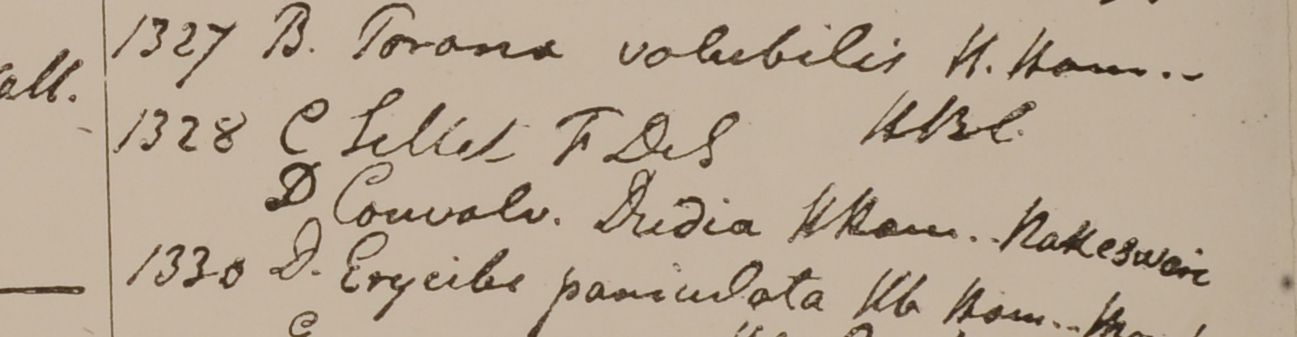 1327 B. Porana volubilis H. Ham..
all.
1328 C Sillet F De S HBC.
D Convolv. Dudia HHam.. Nakeswari
1330 D. Erycibe paniculata Hb Ham..